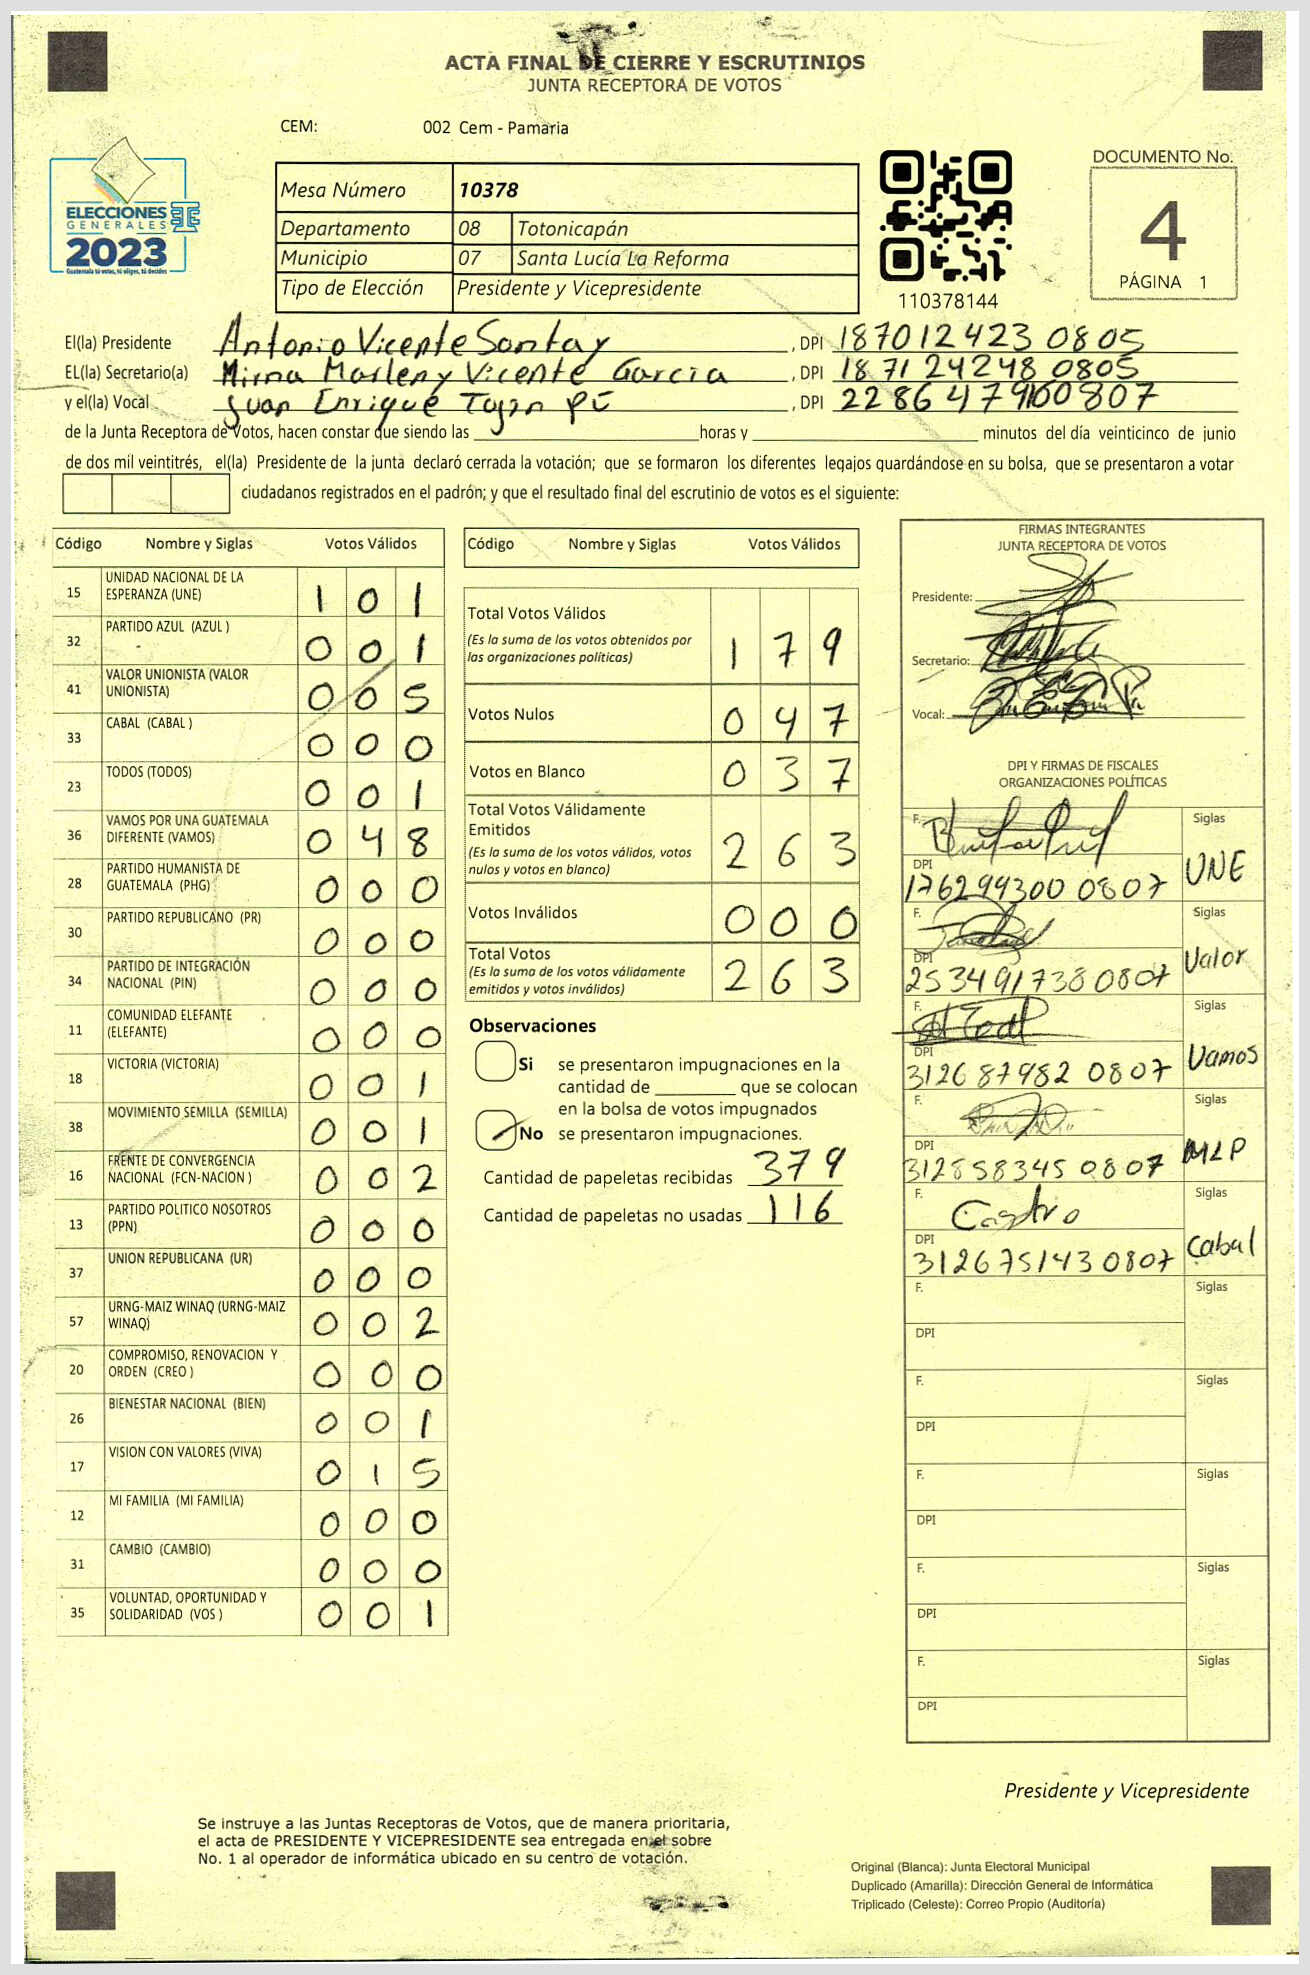 ACTA FINAL DE CIERRE Y ESCRUTINIOS
JUNTA RECEPTORA DE VOTOS
CEM: 002 Cem - Pamaria
ELECCIONES
GENERALES
2023
Guatemala tú votas, tú eliges, tú decides
Mesa Número 10378
Departamento 08 Totonicapán
Municipio 07 Santa Lucía La Reforma
Tipo de Elección Presidente y Vicepresidente
110378144
DOCUMENTO No.
4
PÁGINA 1
El(la) Presidente Antonio Vicente Santay, DPI 187012423 0805
EL(la) Secretario(a) Mirna Marleny Vicente Garcia, DPI 1871 24248 0805
y el(la) Vocal Juan Enrique, DPI 2286479160807
de la Junta Receptora de Votos, hacen constar que siendo las horas y minutos del día veinticinco de junio
de dos mil veintitrés, el(la) Presidente de la junta declaró cerrada la votación; que se formaron los diferentes legajos guardándose en su bolsa, que se presentaron a votar
ciudadanos registrados en el padrón; y que el resultado final del escrutinio de votos es el siguiente:
Código Nombre y Siglas Votos Válidos
15 UNIDAD NACIONAL DE LA
ESPERANZA (UNE) 1 0 1
32 PARTIDO AZUL (AZUL ) 0 0 1
41 VALOR UNIONISTA (VALOR
UNIONISTA) 0 0 5
33 CABAL (CABAL ) 0 0 0
23 TODOS (TODOS) 0 0 1
36 VAMOS POR UNA GUATEMALA
DIFERENTE (VAMOS) 0 4 8
28 PARTIDO HUMANISTA DE
GUATEMALA (PHG) 0 0 0
30 PARTIDO REPUBLICANO (PR) 0 0 0
34 PARTIDO DE INTEGRACIÓN
NACIONAL (PIN) 0 0 0
11 COMUNIDAD ELEFANTE
(ELEFANTE) 0 0 0
18 VICTORIA (VICTORIA) 0 0 1
38 MOVIMIENTO SEMILLA (SEMILLA) 0 0 1
16 FRENTE DE CONVERGENCIA
NACIONAL (FCN-NACION ) 0 0 2
13 PARTIDO POLITICO NOSOTROS
(PPN) 0 0 0
37 UNION REPUBLICANA (UR) 0 0 0
57 URNG-MAIZ WINAQ (URNG-MAIZ
WINAQ) 0 0 2
20 COMPROMISO, RENOVACION Y
ORDEN (CREO ) 0 0 0
26 BIENESTAR NACIONAL (BIEN) 0 0 1
17 VISION CON VALORES (VIVA) 0 1 5
12 MI FAMILIA (MI FAMILIA) 0 0 0
31 CAMBIO (CAMBIO) 0 0 0
35 VOLUNTAD, OPORTUNIDAD Y
SOLIDARIDAD (VOS ) 0 0 1
Código Nombre y Siglas Votos Válidos
Total Votos Válidos
(Es la suma de los votos obtenidos por
las organizaciones políticas) 1 7 9
Votos Nulos 0 4 7
Votos en Blanco 0 3 7
Total Votos Válidamente
Emitidos
(Es la suma de los votos válidos, votos
nulos y votos en blanco) 2 6 3
Votos Inválidos 0 0 0
Total Votos
(Es la suma de los votos válidamente
emitidos y votos inválidos) 2 6 3
Observaciones
Si se presentaron impugnaciones en la
cantidad de que se colocan
en la bolsa de votos impugnados
No se presentaron impugnaciones.
Cantidad de papeletas recibidas 379
Cantidad de papeletas no usadas 116
FIRMAS INTEGRANTES
JUNTA RECEPTORA DE VOTOS
Presidente:
Secretario:
Vocal:
DPI Y FIRMAS DE FISCALES
ORGANIZACIONES POLÍTICAS
F. Siglas
DPI 176299300 0807 UNE
F. Siglas
DPI 253491738 0807 Valor
F. Siglas
DPI 312687982 0807 Vamos
F. Siglas
DPI 312858345 0807 MLP
F. Castro Siglas
DPI 312675143 0807 Cabal
F. Siglas
DPI
F. Siglas
DPI
F. Siglas
DPI
F. Siglas
DPI
F. Siglas
DPI
Presidente y Vicepresidente
Se instruye a las Juntas Receptoras de Votos, que de manera prioritaria,
el acta de PRESIDENTE Y VICEPRESIDENTE sea entregada en el sobre
No. 1 al operador de informática ubicado en su centro de votación.
Original (Blanca): Junta Electoral Municipal
Duplicado (Amarilla): Dirección General de Informática
Triplicado (Celeste): Correo Propio (Auditoría)